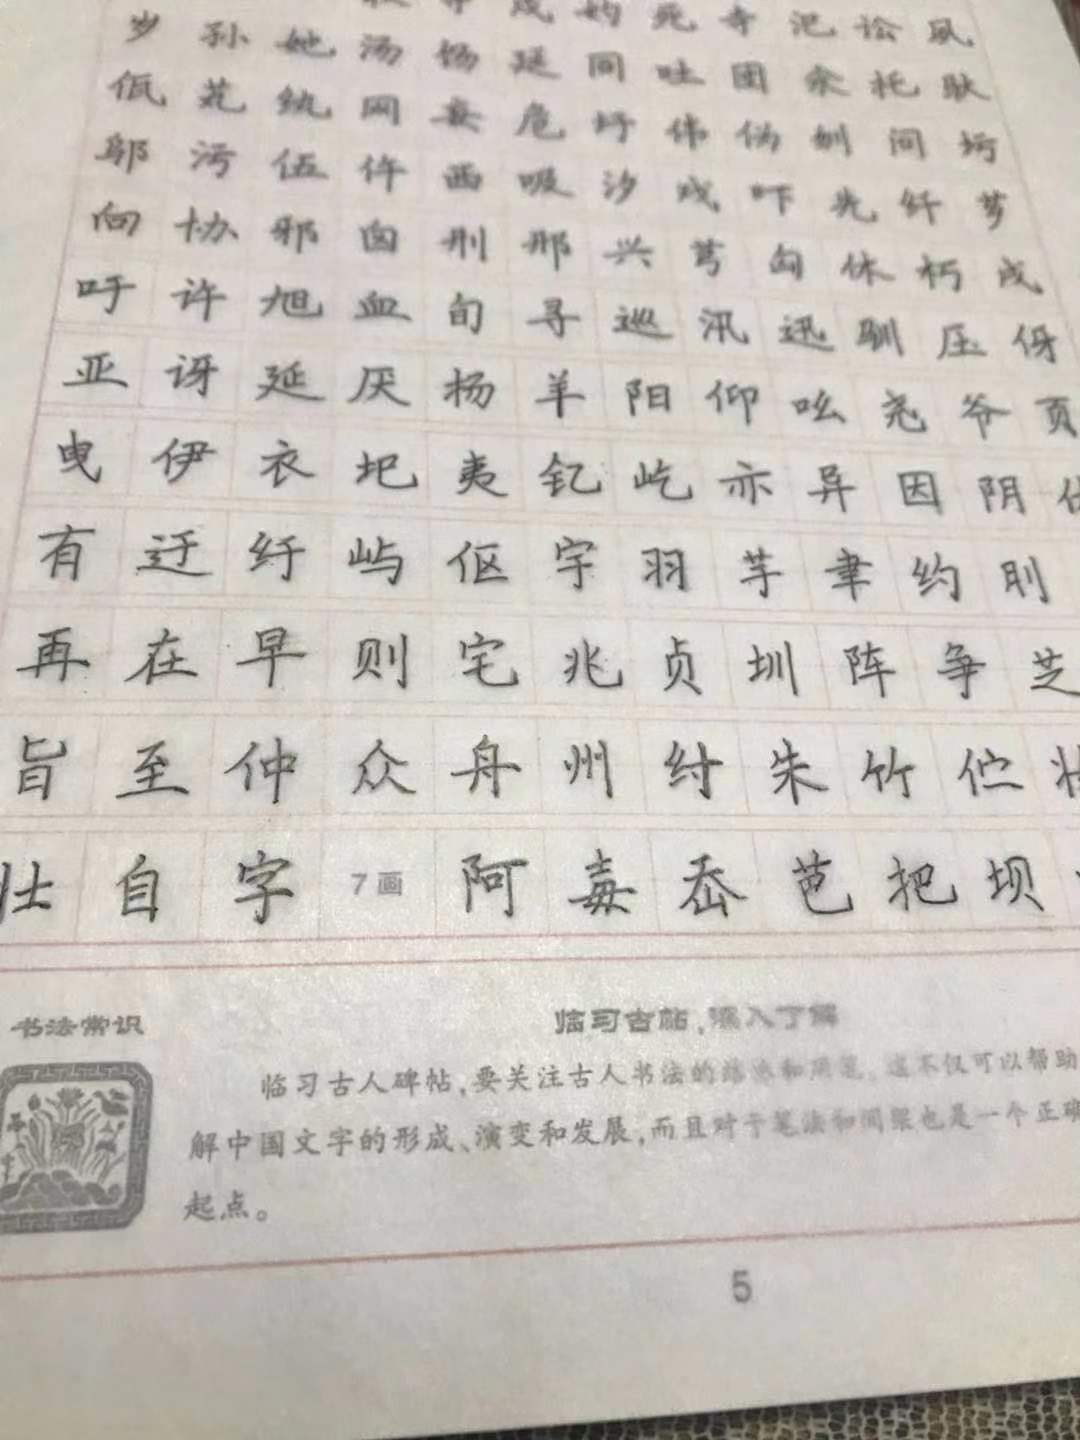 戎 妁 死 寺 汜 讼 夙
岁 孙 她 汤 饧 廷 同 吐 团 氽 托 驮
佤 芄 纨 网 妄 危 圩 伟 伪 刎 问 圬
邬 污 伍 仵 西 吸 汐 戏 吓 先 纤 芗
向 协 邪 囟 刑 邢 兴 芎 匈 休 朽 戌
吁 许 旭 血 旬 寻 巡 汛 迅 驯 压 伢
亚 讶 延 厌 杨 羊 阳 仰 吆 尧 爷 页
曳 伊 衣 圯 夷 钇 屹 亦 异 因 阴
有 迂 纡 屿 伛 宇 羽 芋 聿 约 刖
再 在 早 则 宅 兆 贞 圳 阵 争 芝
旨 至 仲 众 舟 州 纣 朱 竹 伫
仕 自 字 7画 阿 毐 岙 芭 把 坝
书法常识
临习古帖,深入了解
临习古人碑帖,要关注古人书法的 和用笔, 这不仅可以帮助
解中国文字的形成、演变和发展,而且对于笔法和间架也是一个正确
起点。
5